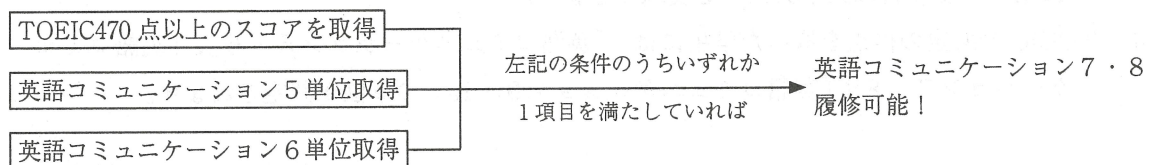 TOEIC470点以上のスコアを取得
英語コミュニケーション5単位取得
英語コミュニケーション6単位取得
左記の条件のうちいずれか
1項目を満たしていれば
英語コミュニケーション7・8
履修可能！